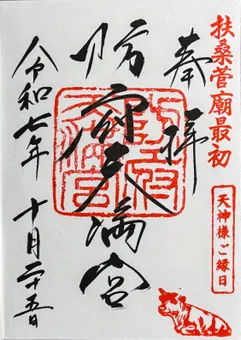 扶桑菅廟最初
天神様ご縁日
奉拝
防府天満宮
令和七年 十月二十五日
防府天満宮